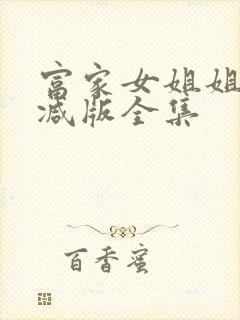 富家女姐姐
减版全集
百香蜜